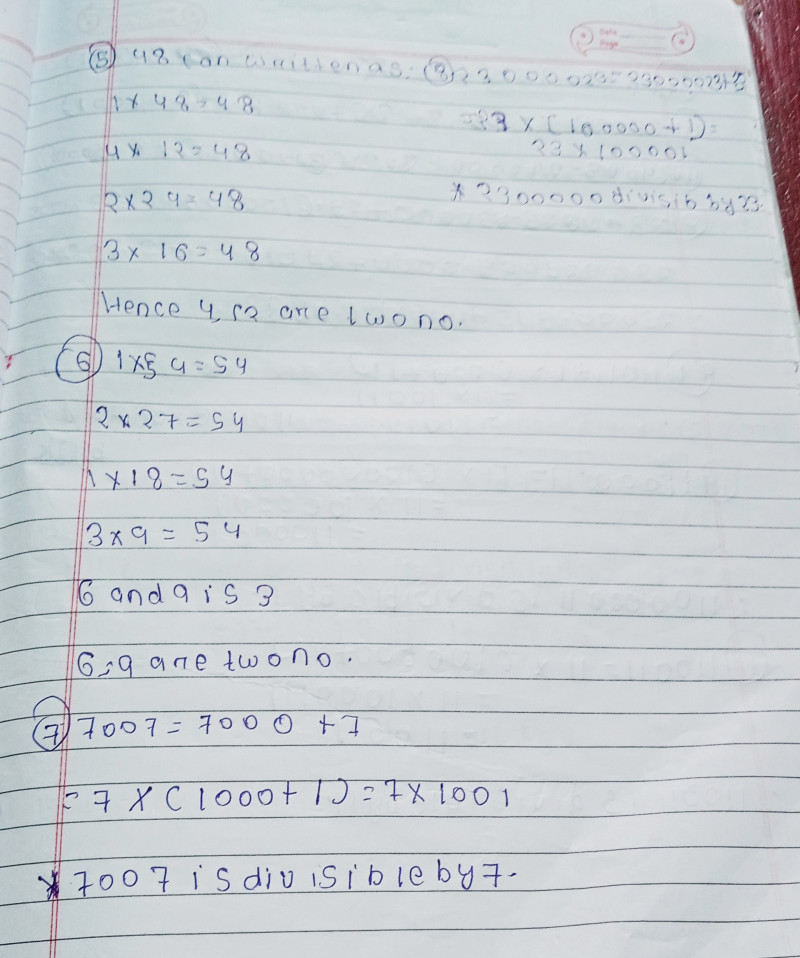 Date
Page
⑤ 48 can written as:
1 x 48 = 48
4 x 12 = 48
2 x 24 = 48
3 x 16 = 48
Hence 4, 12 are two no.
⑥ 1 x 54 = 54
2 x 27 = 54
1 x 18 = 54
3 x 9 = 54
6 and 9 is 3
6, 9 are two no.
⑦ 7007 = 7000 + 7
= 7 x (1000 + 1) = 7 x 1001
* 7007 is divisible by 7.
⑧ 2300023 = 2300000 + 23
= 23 x (100000 + 1) =
23 x 100001
* 2300000 divisib by 23.